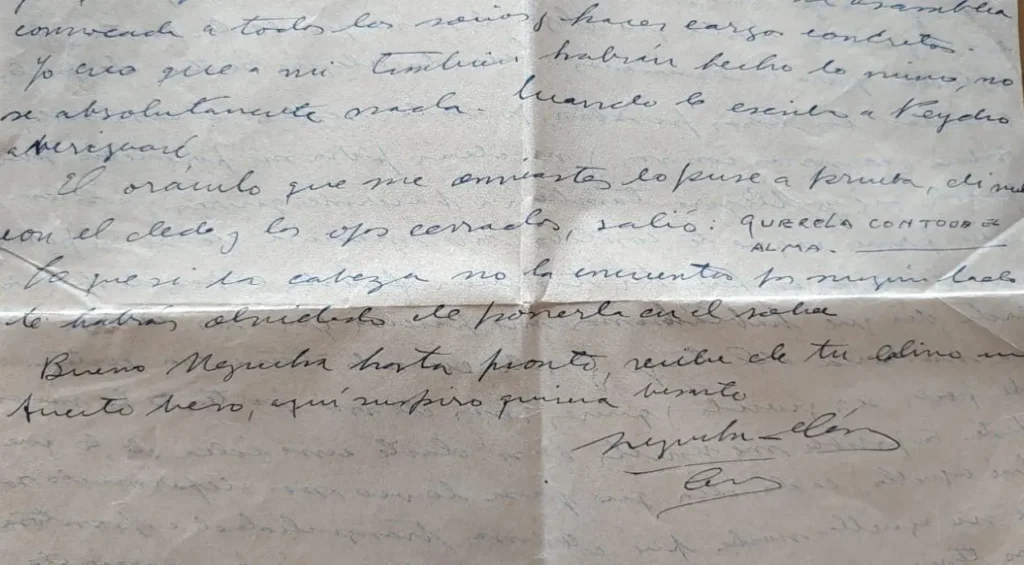 asamblea
convocada a todos los socios y hacer cargos concretos.
Yo creo que a mi también habrán hecho lo mismo, no
se absolutamente nada. Cuando le escriba a Peydro
averiguaré
El oráculo que me enviastes lo puse a prueba, di
con el dedo y los ojos cerrados, salió: QUERELA CON TODO EL
ALMA.
la que si la cabeza no la encuentro por ningún lado
te habrás olvidado de ponerla en el sobre
Bueno hasta pronto, recibe de tu un
fuerte beso, aquí suspiro quiera